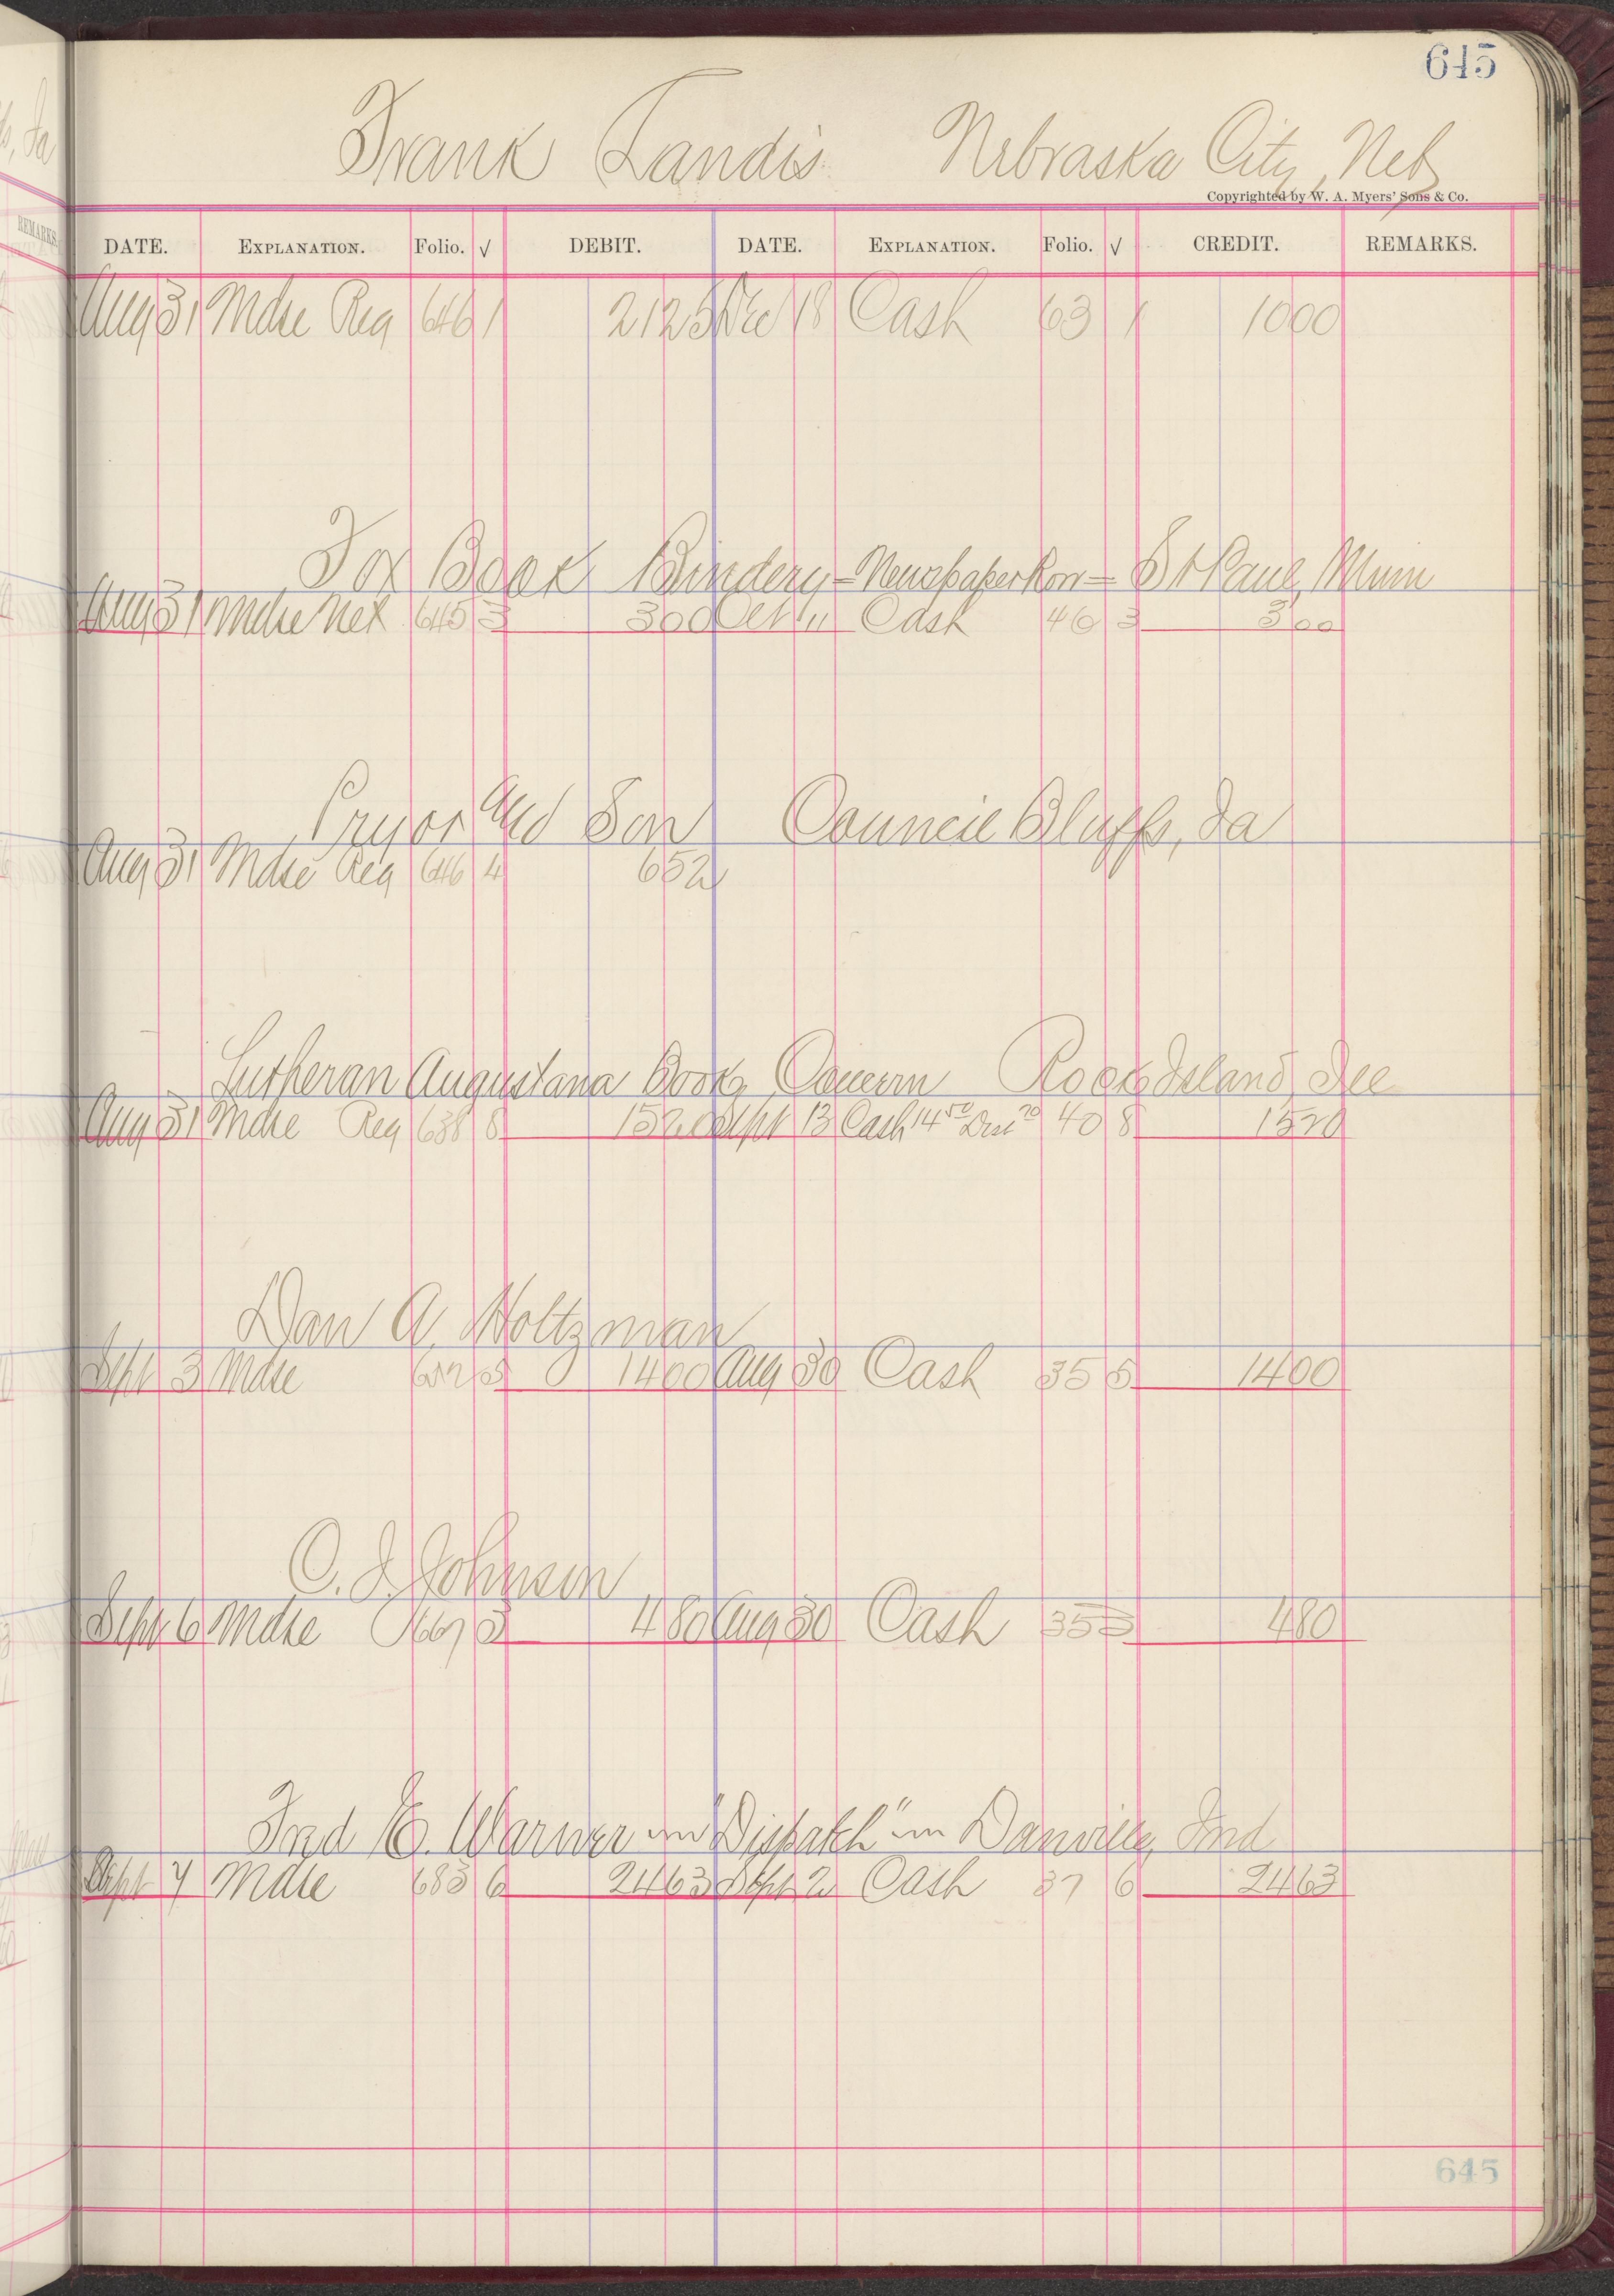 645
Frank Landis Nebraska City, Neb
Copyrighted by W. A. Myers' Sons & Co.
DATE. EXPLANATION. Folio. √ DEBIT. DATE. EXPLANATION. Folio. √ CREDIT. REMARKS.
Aug 31 Mdse Reg 646 1 2125 Dec 18 Cash 63 1 1000
Fox Book Bindery - Newspaper Row - St Paul, Minn
Aug 31 Mdse Net 645 3 300 Oct 11 Cash 46 3 300
Pryor and Son Council Bluffs, Ia
Aug 31 Mdse Reg 646 4 652
Lutheran Augustana Book Concern Rock Island, Ill
Aug 31 Mdse Reg 638 8 1520 Sept 13 Cash 14 50 Disc 70 40 8 1520
Dan A. Holtzman
Sept 3 Mdse 5 1400 Aug 30 Cash 35 5 1400
C. J. Johnson
Sept 6 Mdse 3 480 Aug 30 Cash 35 3 480
Fred E. Warner "Dispatch" Danville, Ind
Sept 7 Mdse 683 6 2463 Sept 2 Cash 37 6 2463
645
REMARKS.